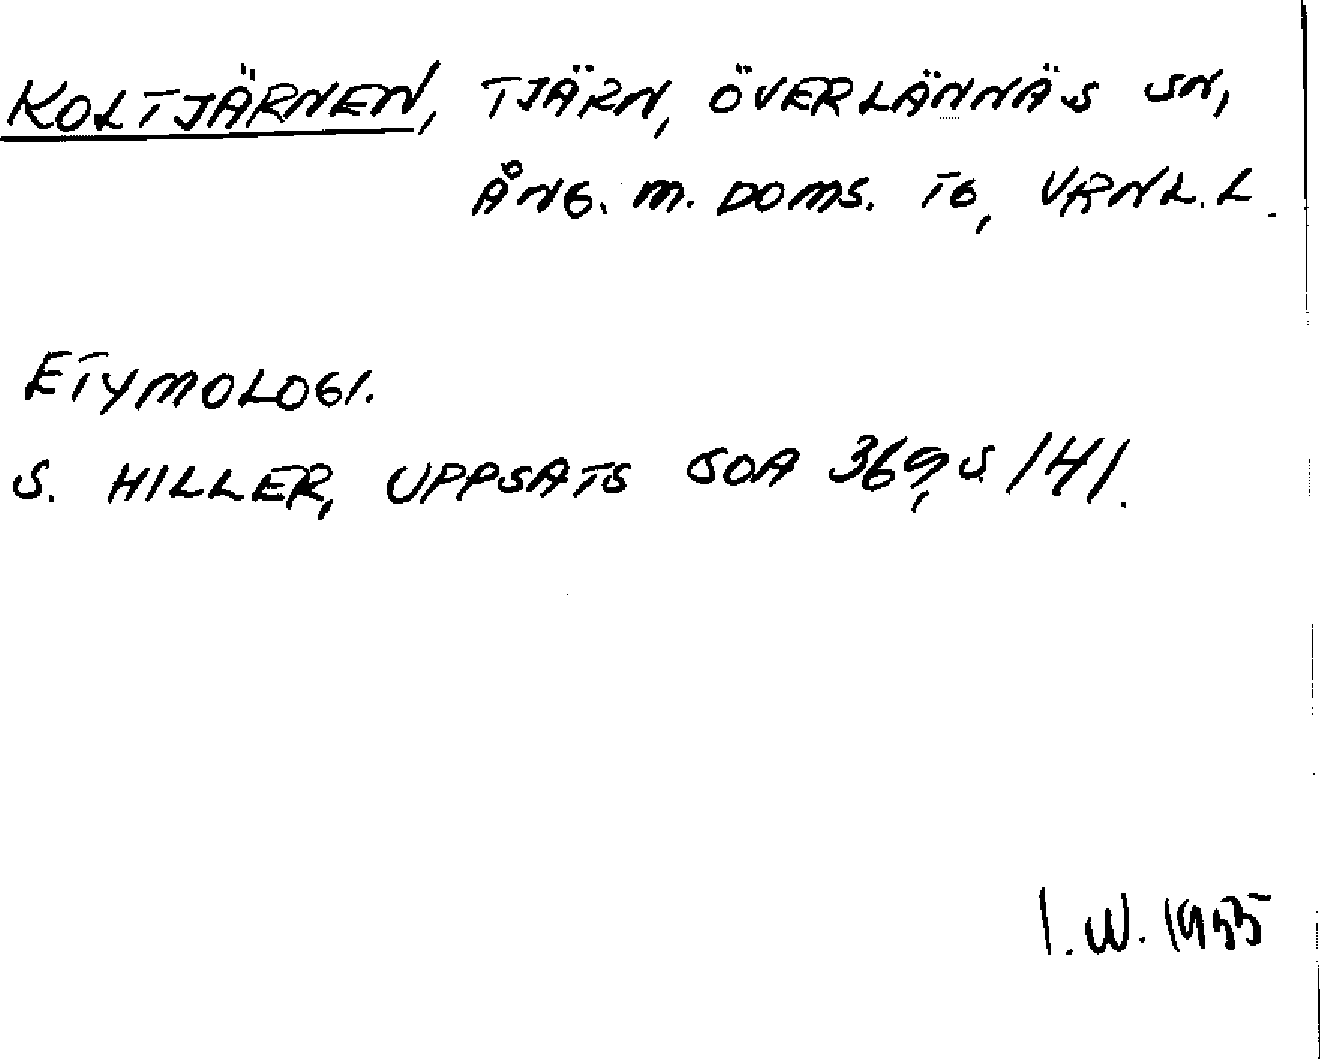 KOLTJÄRNEN, TJÄRN, ÖVERLÄNNÄS SN,
ÅNG. M. DOMS. TG, VRNL. L.
ETYMOLOGI.
S. HILLER, UPPSATS SOA 369, S 141.
I.W. 1955